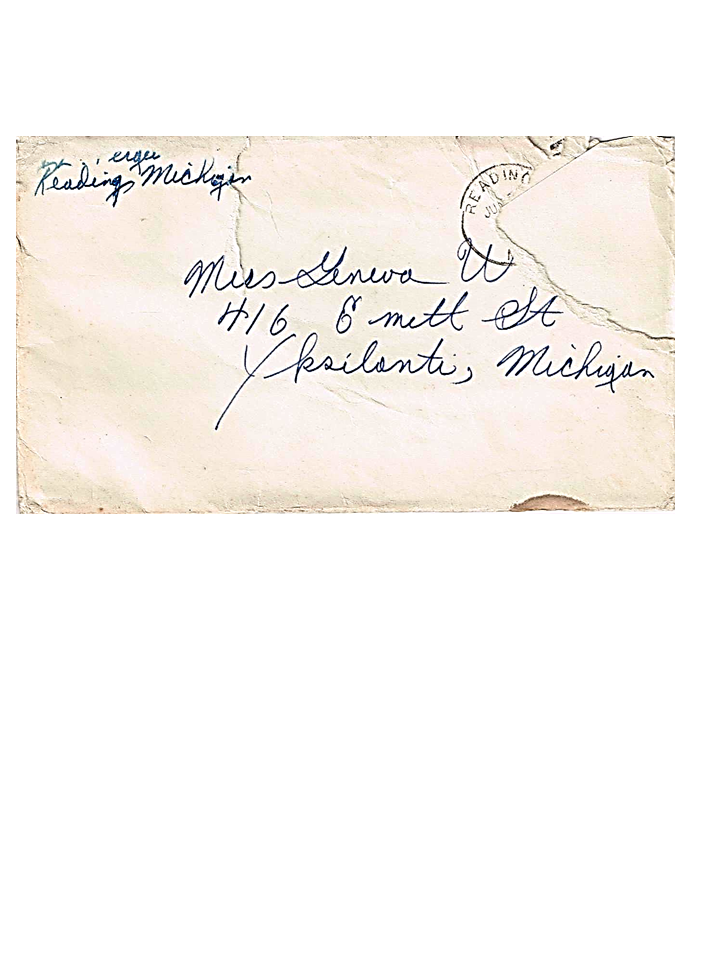 Reading, Michigan
READING
JUN
Miss Geneva W
416 Emmett St
Ypsilanti, Michigan